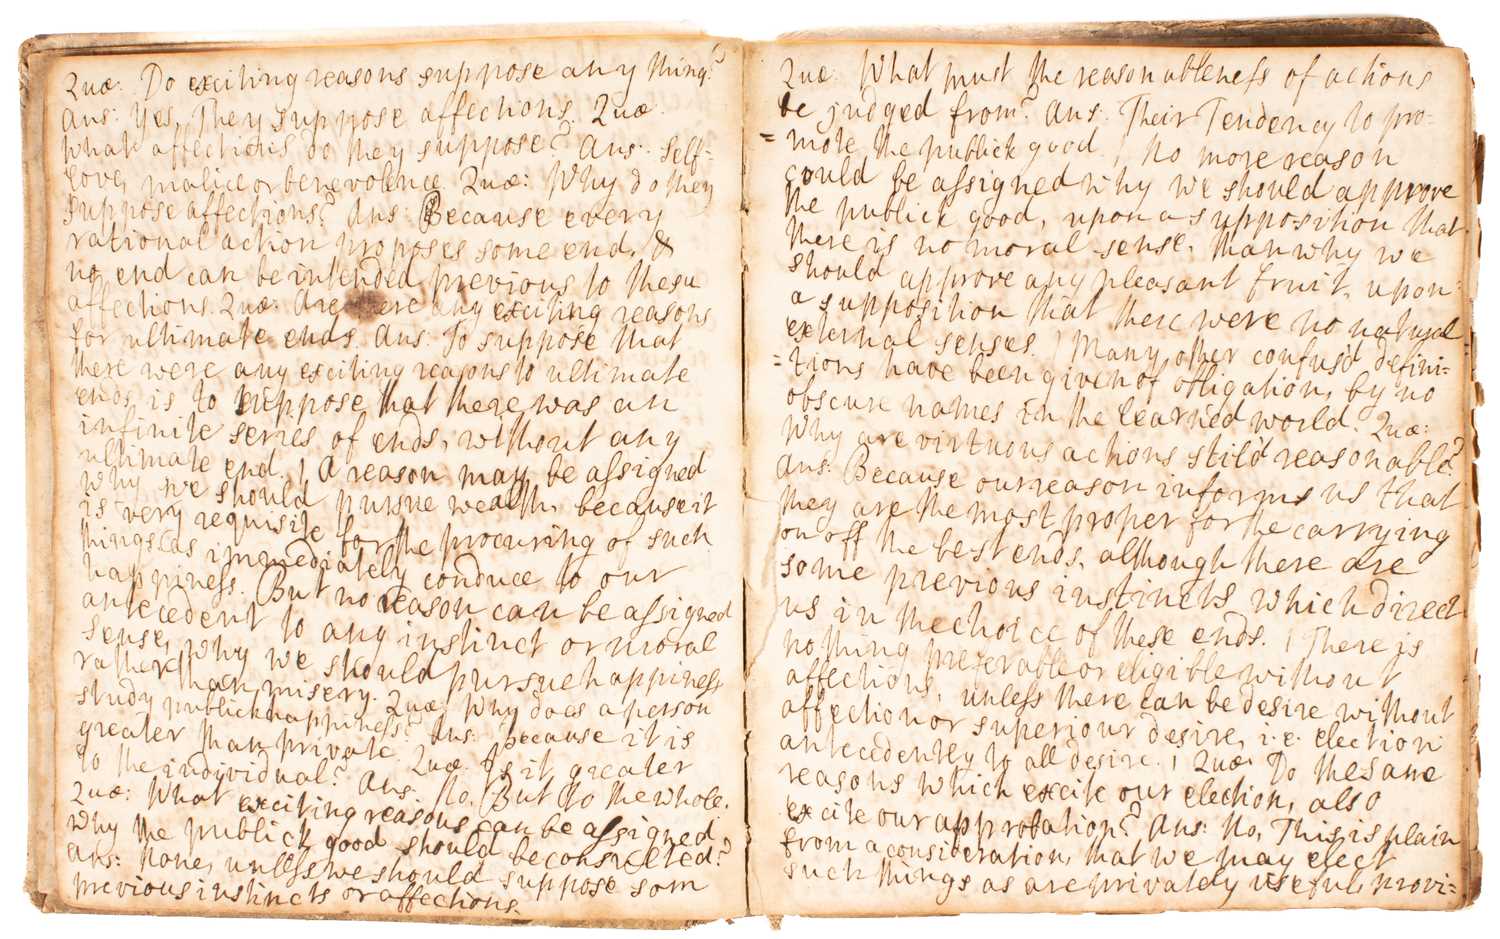 Quæ: Do exciting reasons suppose any thing?
Ans: Yes, They suppose affections. Quæ
What affections do they suppose? Ans: Self-
love, malice or benevolence. Quæ: Why do they
suppose affections? Ans: Because every
rational action proposes some end, &
no end can be intended previous to these
affections. Quæ: Are there any exciting reasons
for ultimate ends. Ans: To suppose that
there were any exciting reasons to ultimate
ends, is to suppose that there was an
infinite series of ends, without any
ultimate end. | A reason may be assigned
why we should pursue wealth, because it
is very requisite for the procuring of such
things as immediately conduce to our
happiness. But no reason can be assigned
antecedent to any instinct or moral
sense, why we should pursue happiness
rather than misery. Quæ: Why does a person
study publick happiness? Ans: Because it is
greater than private. Quæ: Is it greater
to the individual? Ans: No, But to the whole.
Quæ: What exciting reasons can be assigned
why the publick good should be consulted?
Ans: None, unless we should suppose som
previous instincts or affections.
Quæ: What must the reasonableness of actions
be judged from? Ans: Their Tendency to pro-
=mote the publick good. | No more reason
could be assigned why we should approve
the publick good, upon a supposition that
there is no moral sense, than why we
should approve any pleasant fruit, upon
a supposition that there were no natural
external senses. | Many other confus'd defini-
=tions have been given of obligation, by no
obscure names in the learned world. Quæ:
Why are virtuous actions stil'd reasonable?
Ans: Because our reason informs us that
they are the most proper for the carrying
on off the best ends, although there are
some previous instincts which direct
us in the choice of these ends. | There is
nothing preferable or eligible without
affections, unless there can be desire without
affection or superiour desire, i.e. election
antecedently to all desire. | Quæ: Do the same
reasons which excite our election, also
excite our approbation? Ans: No, This is plain
from a consideration, that we may elect
such things as are privately useful, provi-